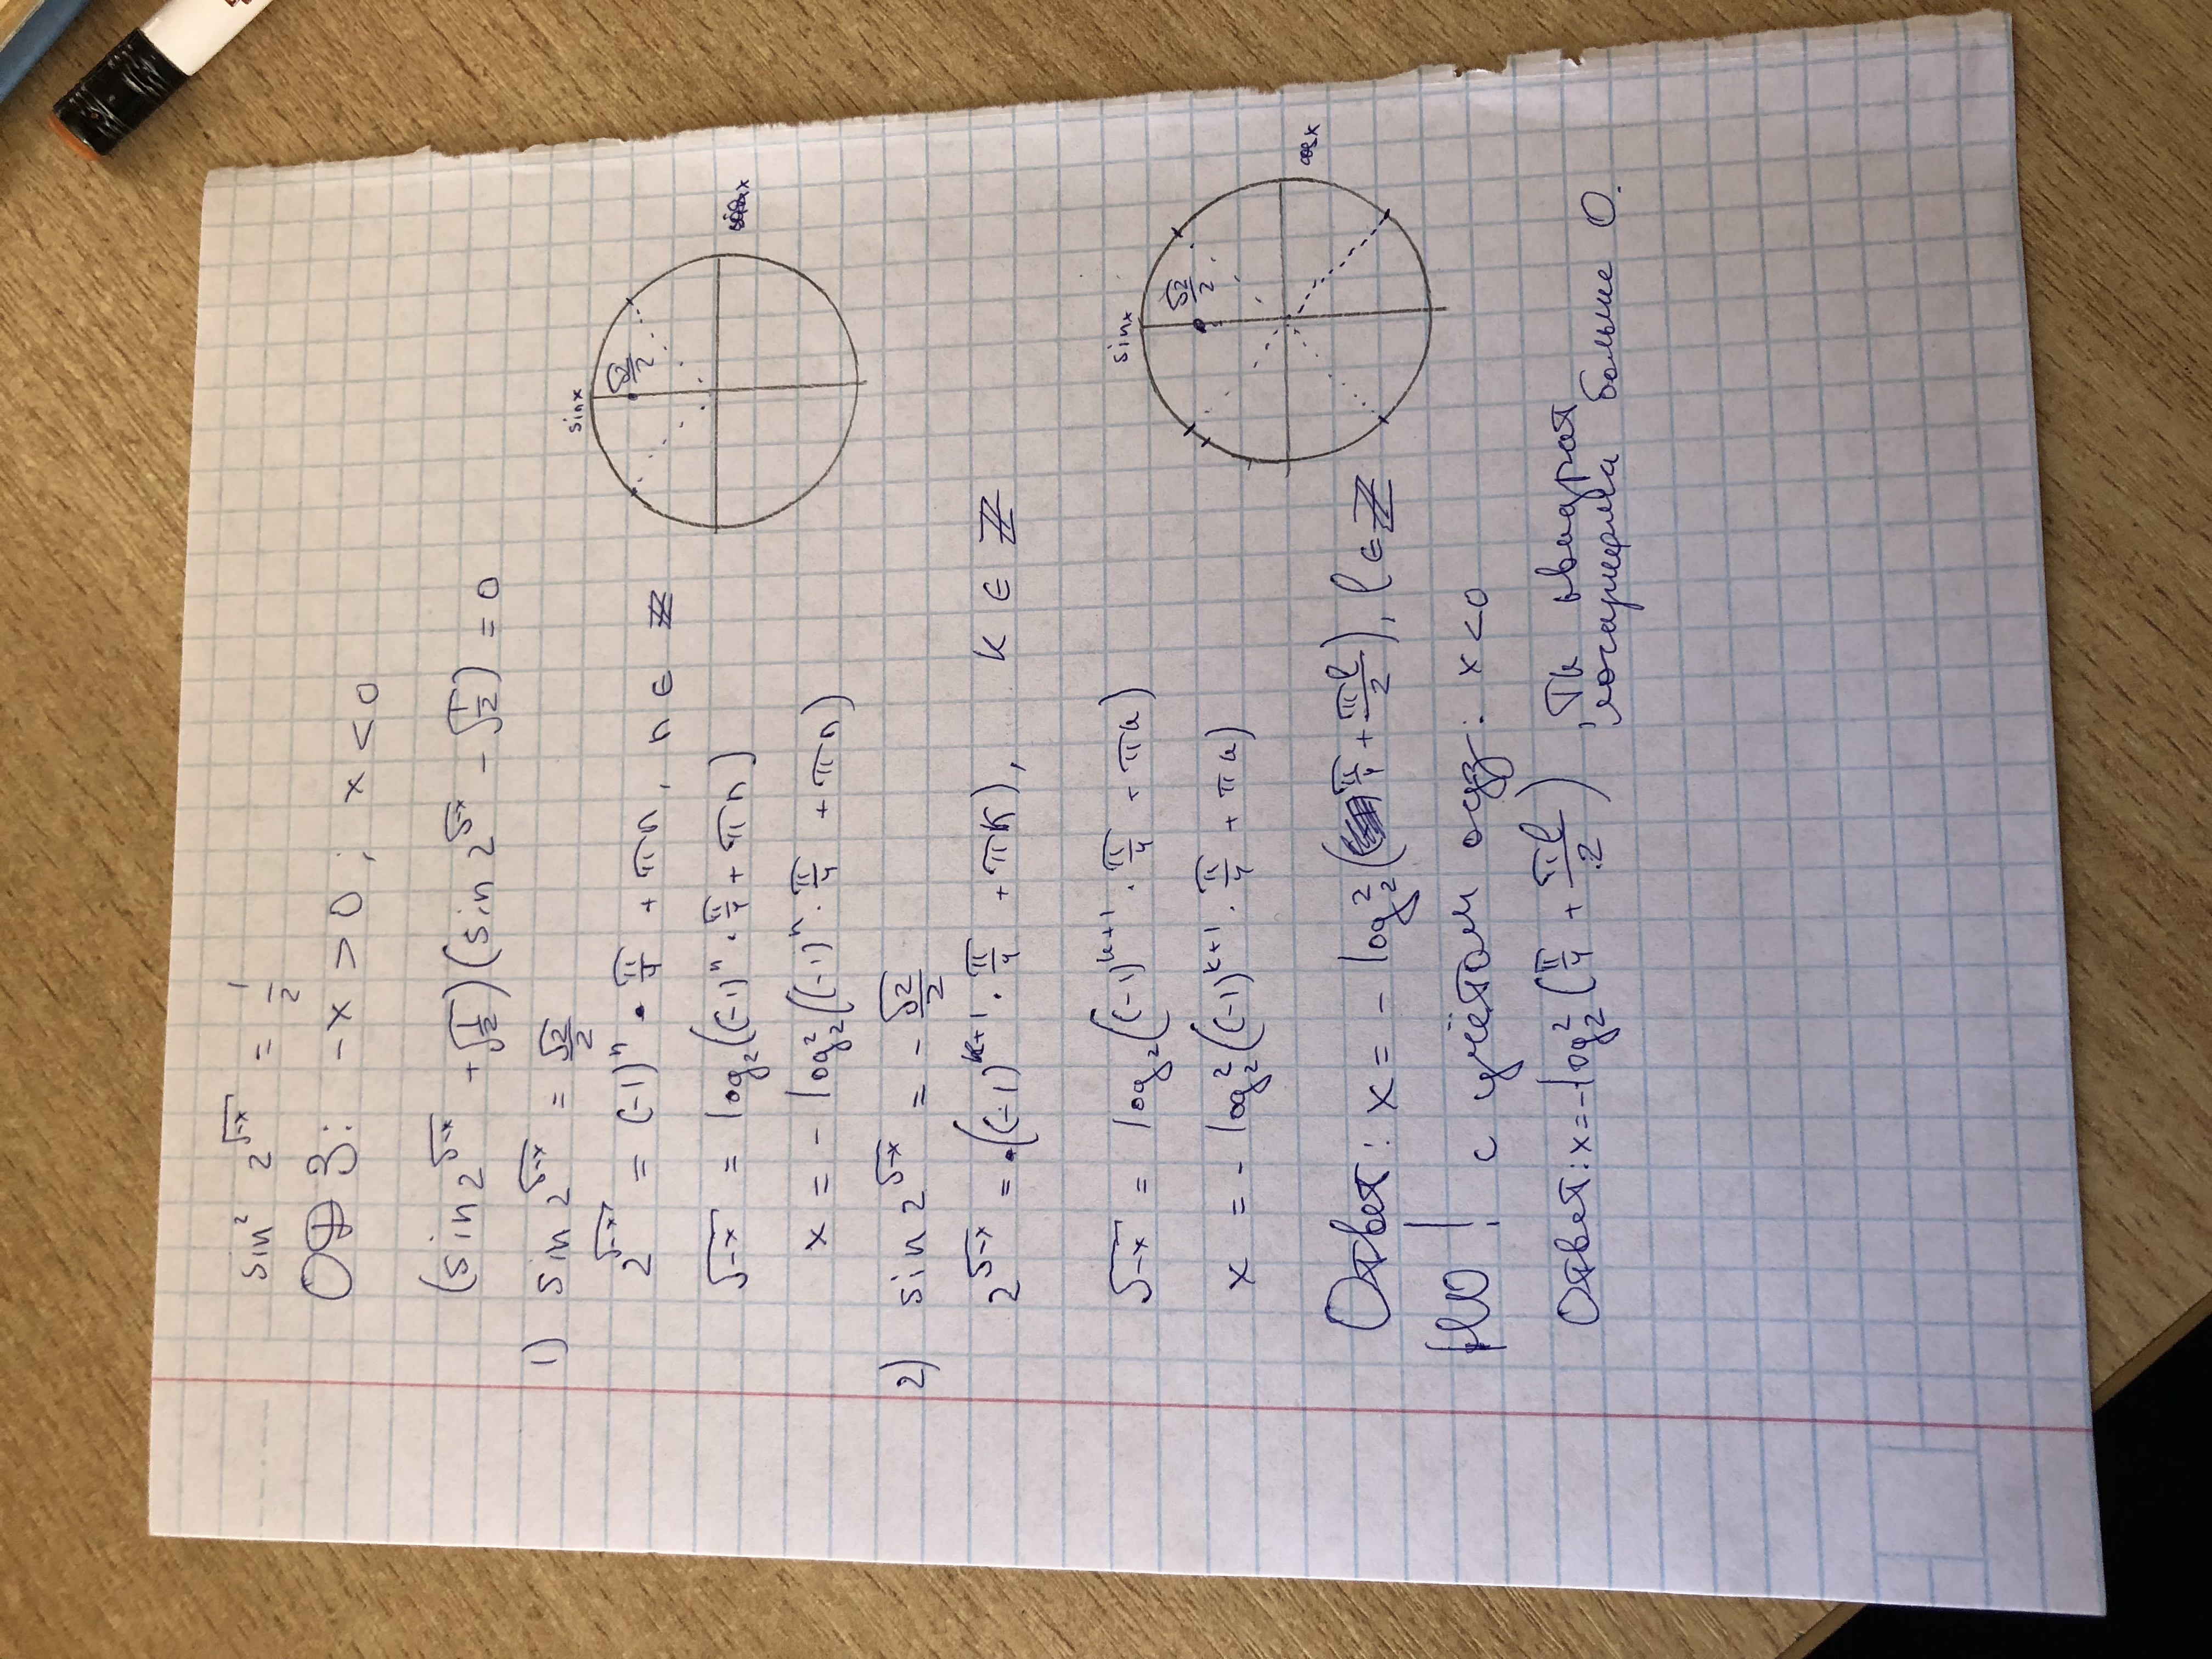 sin² 2^√-x = 1/2
ОДЗ: -x > 0 ; x < 0
(sin 2^√-x + √(1/2))(sin 2^√-x - √(1/2)) = 0
1) sin 2^√-x = √2/2
2^√-x = (-1)^n · π/4 + πn, n ∈ ℤ
√-x = log₂((-1)^n · π/4 + πn)
x = - log₂²((-1)^n · π/4 + πn)
sin x
√2/2
2) sin 2^√-x = - √2/2
2^√-x = ((-1)^k+1 · π/4 + πk), k ∈ ℤ
√-x = log₂((-1)^k+1 · π/4 + πk)
x = - log₂²((-1)^k+1 · π/4 + πk)
sin x
√2/2
cos x
Ответ: x = - log₂²(π/4 + πl/2), l ∈ ℤ
НО! с учётом одз: x < 0
Ответ: x = - log₂²(π/4 + πl/2), тк квадрат
логарифма больше 0.